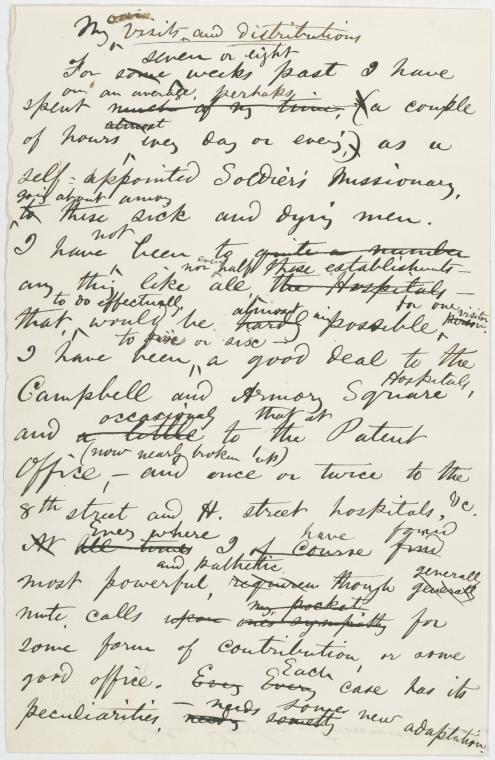 own
My visits and distributions
seven or eight
For some weeks past I have
on an average, perhaps
spent much of my time, (a couple
almost
of hours every day or eve'g,) as a
self-appointed Soldier's Missionary,
going about among
to these sick and dying men.
not
I have been to quite a number
nor even half these establishments
any thing like all the Hospitals —
to do effectually, almost for one visitor
that would be hardly impossible, person.
to five or six —
I have been a good deal to the
Hospitals,
Campbell and Armory Square
occasionally that at
and a little to the Patent
(now nearly broken up)
Office, — and once or twice to the
8th street and H. street hospitals, &c.
Every where have found
At all times I of course find
and pathetic generally
most powerful, though generally
my pockets
mute, calls upon one's sympathy for
some form of contribution, or some
good office. Every Every Each case has its
needs some new
peculiarities, needs something adaptation.